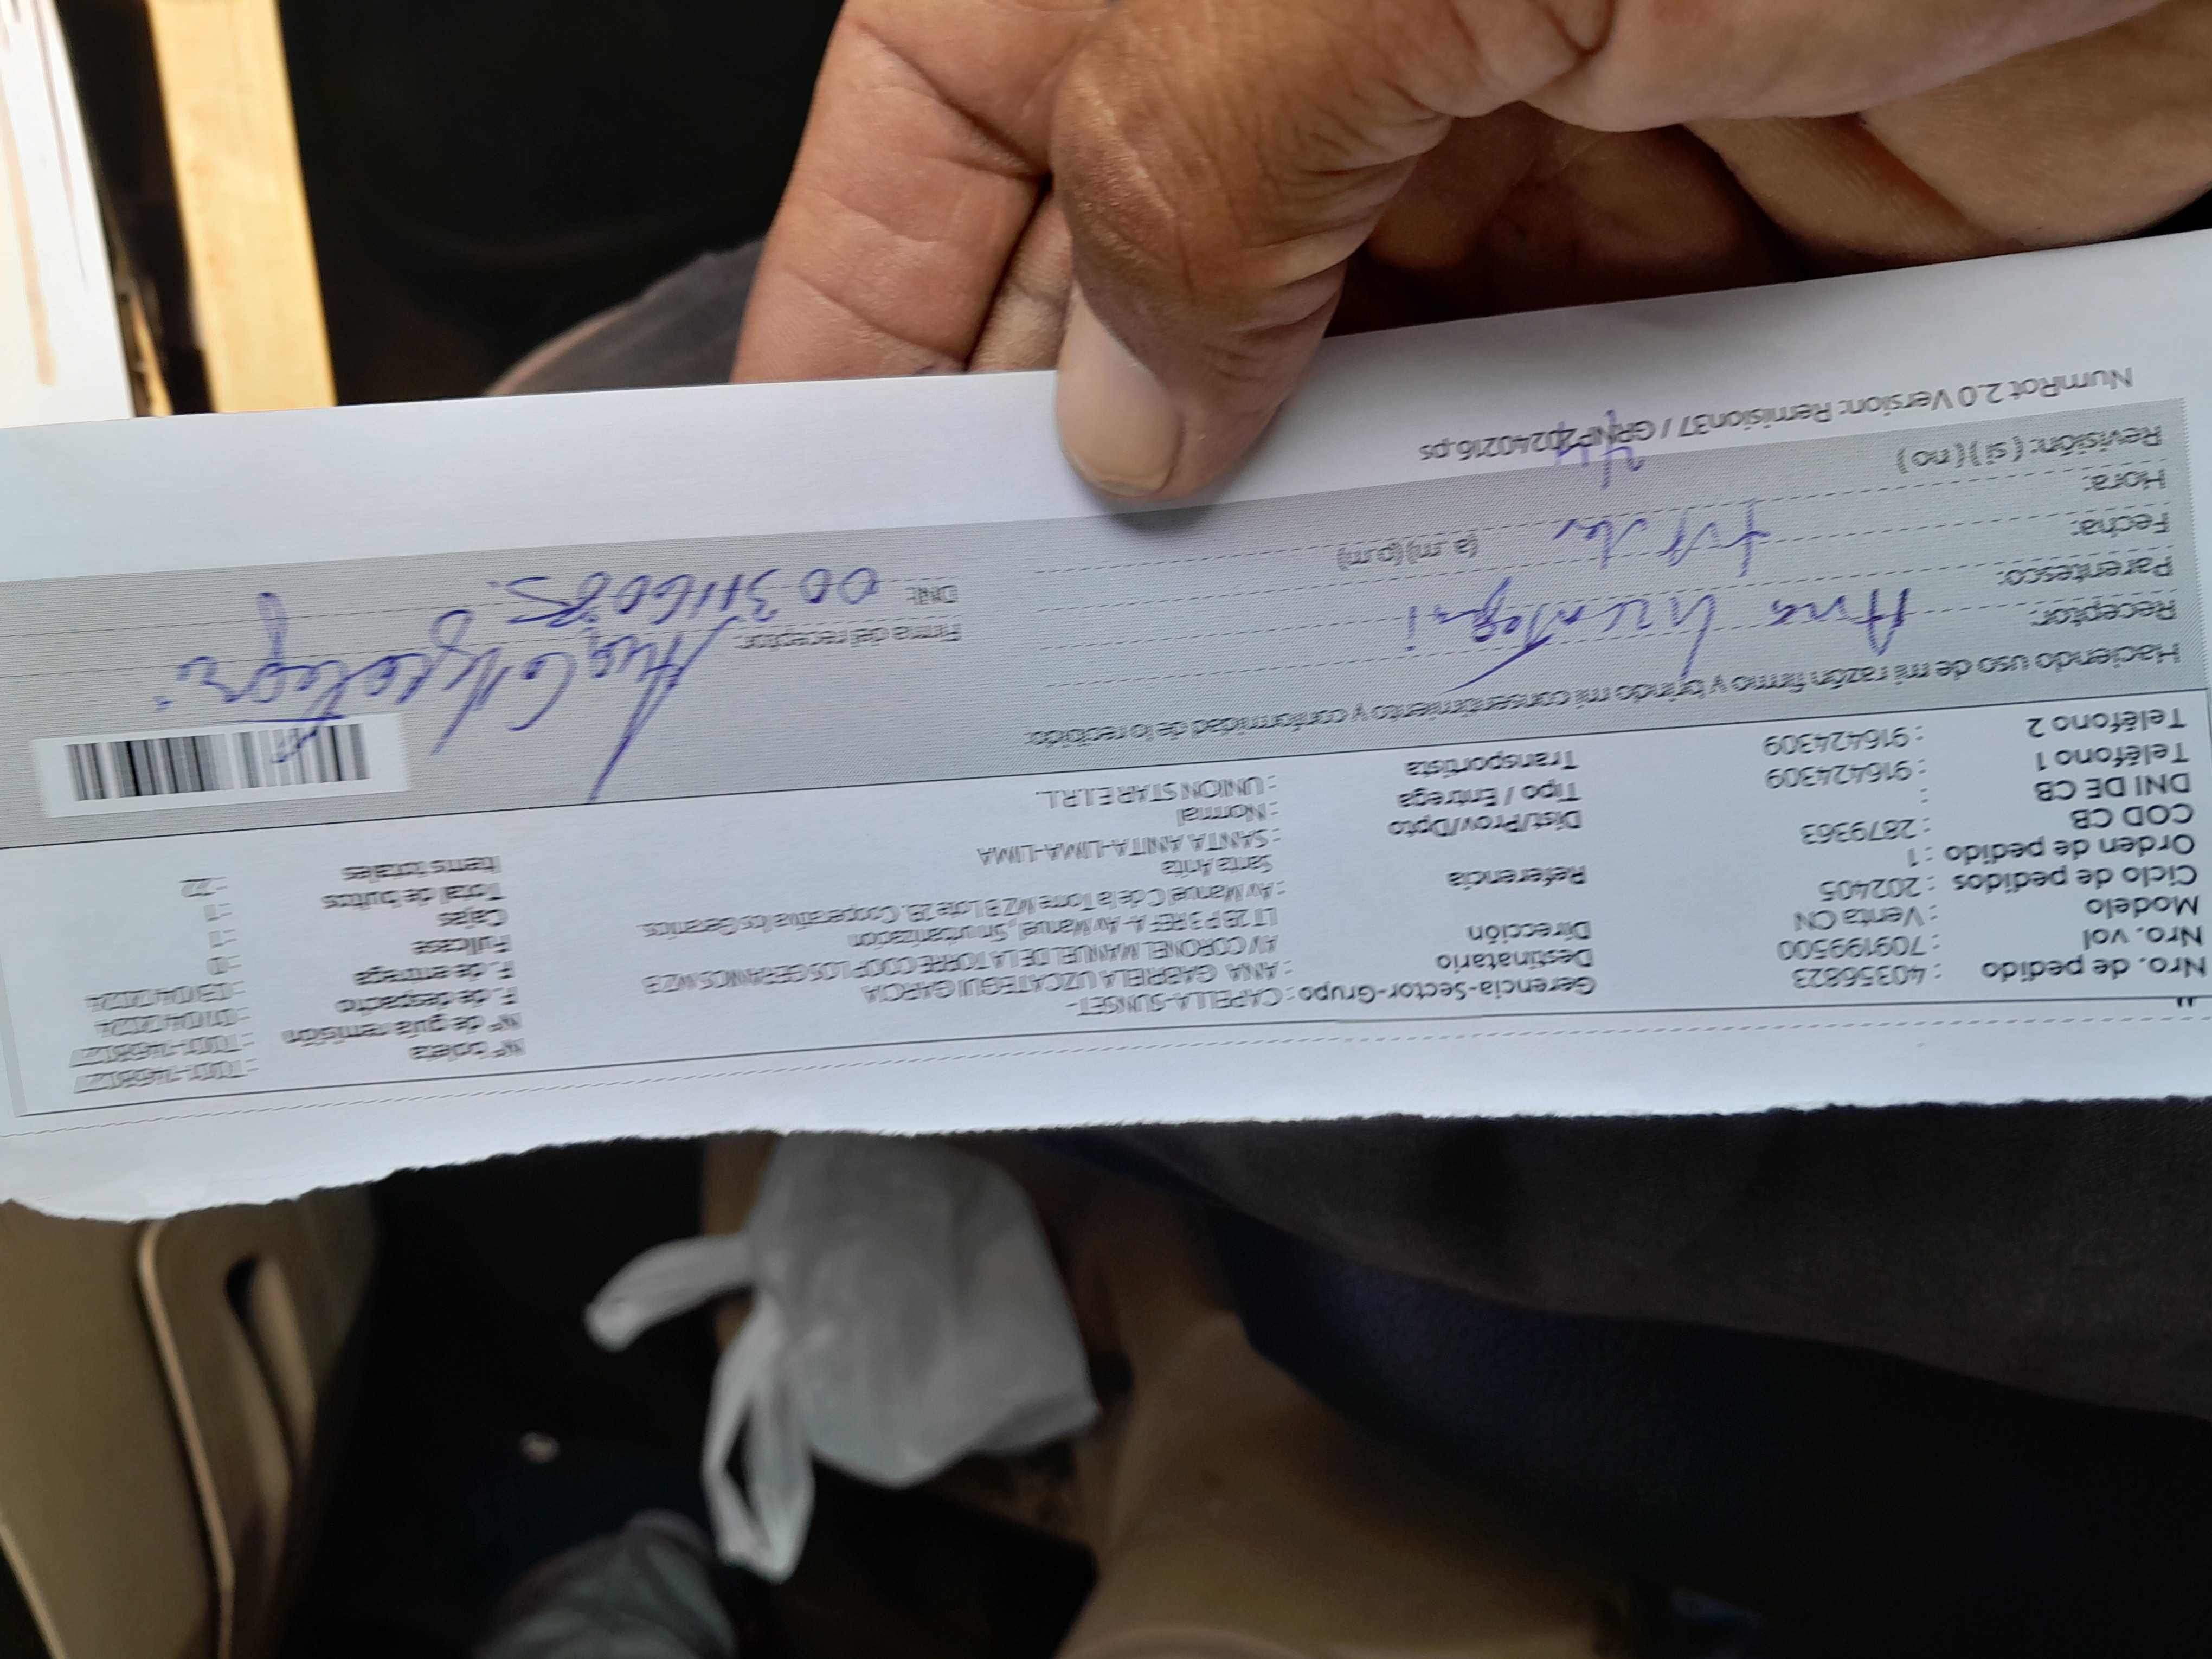 Nro. de pedido : 40356823
Nro. vol : 709199500
Modelo : Venta CN
Ciclo de pedidos : 202405
Orden de pedido : 1
COD CB : 2879363
DNI DE CB :
Teléfono 1 : 916424309
Teléfono 2 : 916424309
Gerencia-Sector-Grupo : CAPELLA-SUNSET-
Destinatario : ANA GABRIELA UZCATEGUI GARCIA
Dirección AV CORONEL MANUEL DE LA TORRE COOP LOS GERANIOS MZ B
LT 2B P 3 REF A- Av Manuel, Sn urbanizacion
Referencia : Av Manuel C de la Torre MZ B Lote 2B. Cooperativa los Geranios.
Santa Anita
Dist/Prov/Dpto : SANTA ANITA-LIMA-LIMA
Tipo / Entrega : Normal
Transportista : UNION STAR E.I.R.L.
N° boleta
N° de guía remisión
F. de despacho : 01/04/2024
F. de entrega : 03/04/2024
Fullcase : 0
Cajas : 1
Total de bultos : 1
Items totales : 22
Haciendo uso de mi razón firmo y brindo mi consentimiento y conformidad de lo recibido.
Receptor: Ana
Parentesco:
Fecha:
Hora: (a.m)(p.m)
Revisión: ( si ) ( no )
Firma del receptor:
DNI:
NumRot 2.0 Version: Remision37 / GRNP20240216.ps